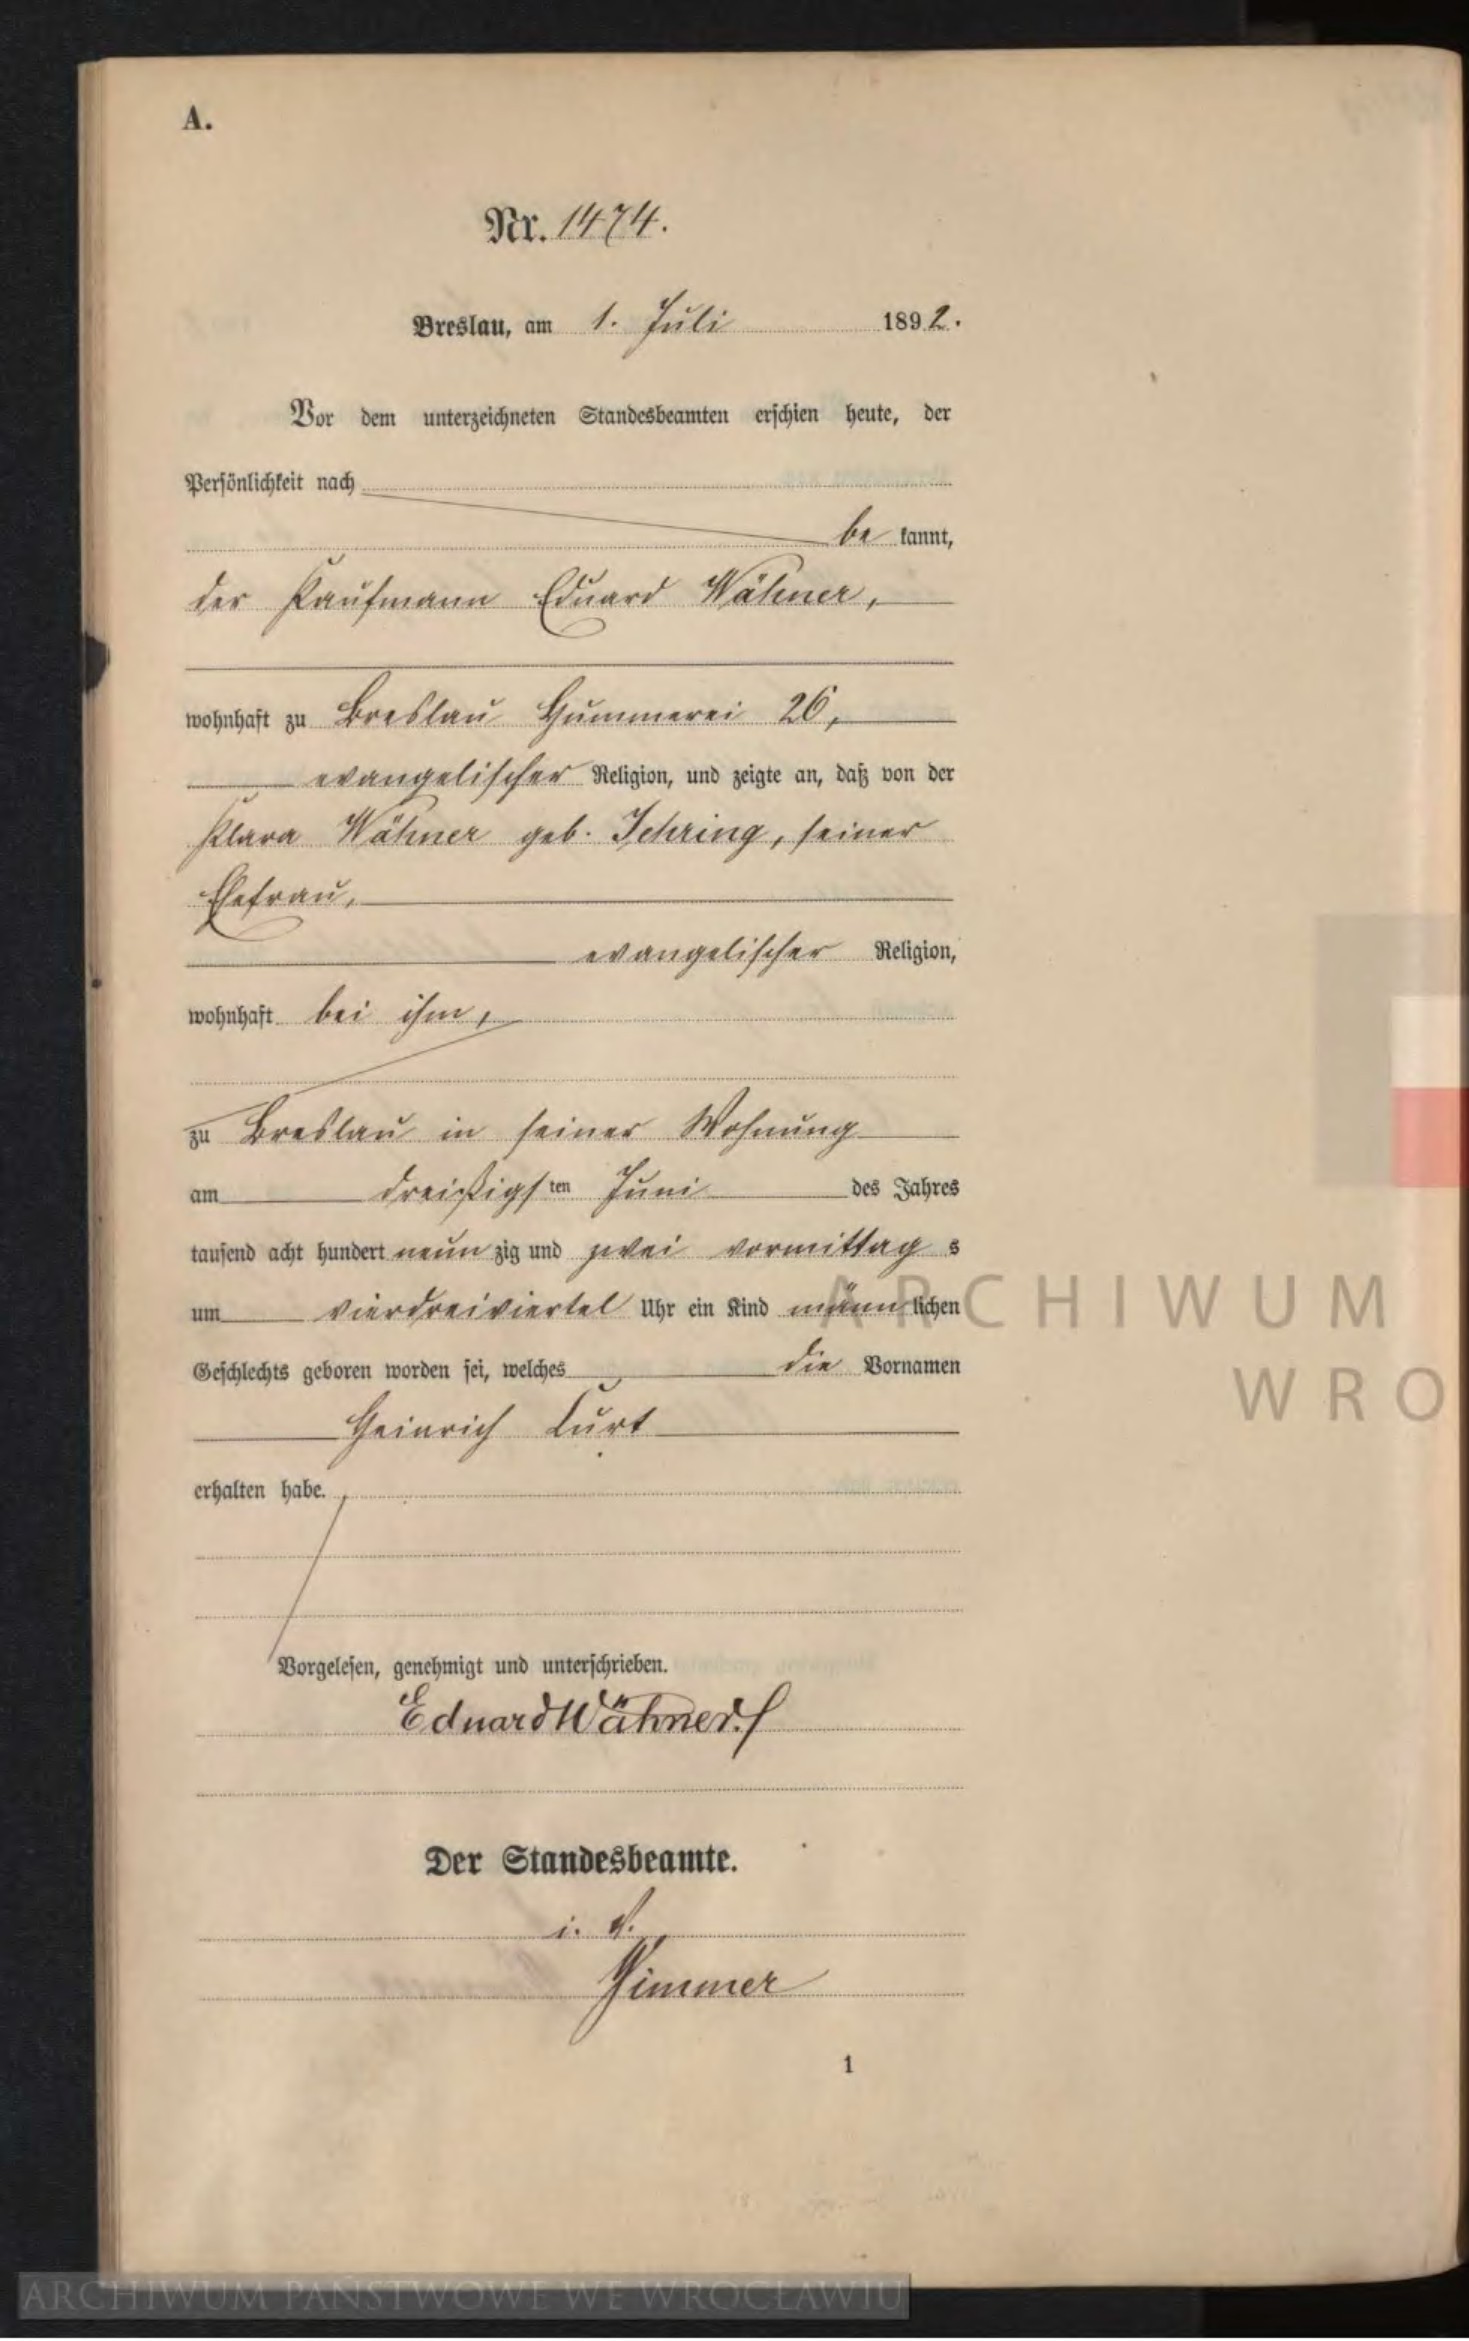 A.
Nr. 1474.
Breslau, am 1. Juli 1892.
Vor dem unterzeichneten Standesbeamten erschien heute, der
Persönlichkeit nach
be kannt,
der Kaufmann Eduard Wähner,
wohnhaft zu Breslau Hummerei 26,
evangelischer Religion, und zeigte an, daß von der
Klara Wähner geb. Jehring, seiner
Ehefrau,
evangelischer Religion,
wohnhaft bei ihm,
zu Breslau in seiner Wohnung
am dreißigsten Juni des Jahres
tausend acht hundert neun zig und zwei vormittag s
um vierdreiviertel Uhr ein Kind männlichen
Geschlechts geboren worden sei, welches die Vornamen
Heinrich Curt
erhalten habe.
Vorgelesen, genehmigt und unterschrieben.
Eduard Wähner.
Der Standesbeamte.
i. V.
Zimmer
1
ARCHIWUM
WRO
ARCHIWUM PAŃSTWOWE WE WROCŁAWIU